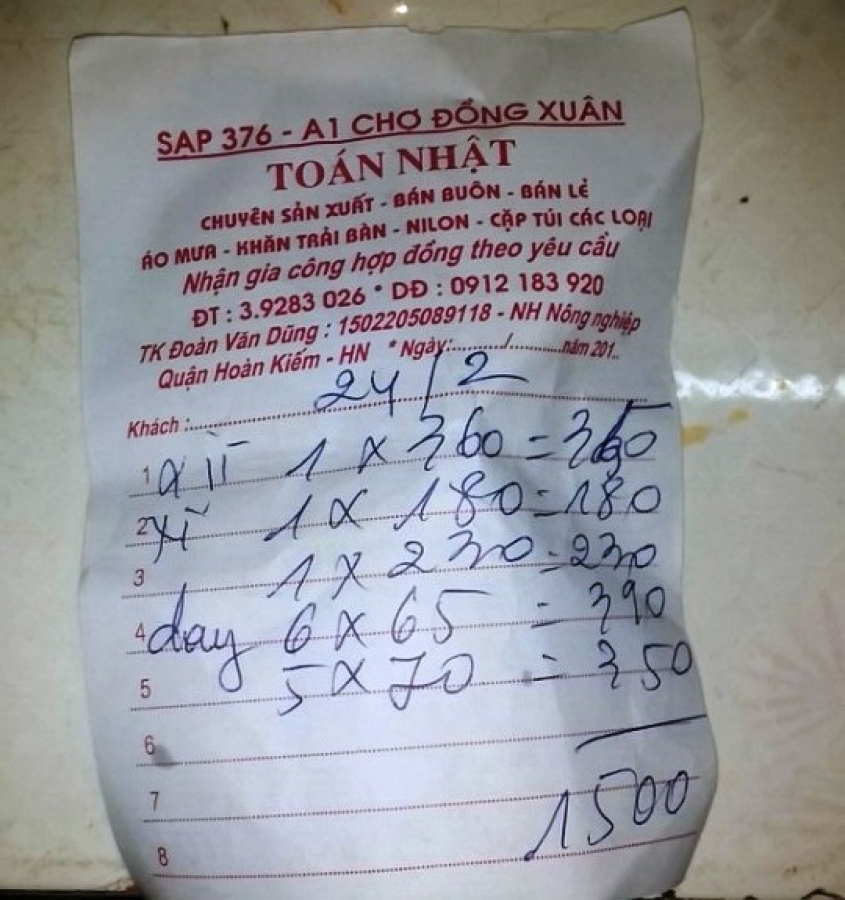 SẠP 376 - A1 CHỢ ĐỒNG XUÂN
TOÁN NHẬT
CHUYÊN SẢN XUẤT - BÁN BUÔN - BÁN LẺ
ÁO MƯA - KHĂN TRẢI BÀN - NILON - CẶP TÚI CÁC LOẠI
Nhận gia công hợp đồng theo yêu cầu
ĐT : 3.9283 026 * DĐ : 0912 183 920
TK Đoàn Văn Dũng : 1502205089118 - NH Nông nghiệp
Quận Hoàn Kiếm - HN * Ngày:........../..........năm 201..
24/2
Khách :
1 1 x 360 = 360
2 1 x 180 = 180
3 1 x 230 = 230
4 day 6 x 65 = 390
5 5 x 70 = 350
6
7 1500
8